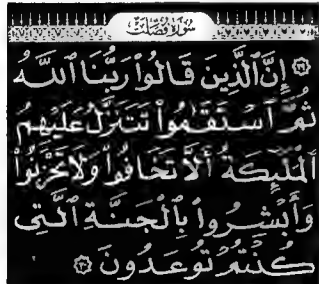 سُورَةُ فُصِّلَتْ
إِنَّ ٱلَّذِينَ قَالُوا۟ رَبُّنَا ٱللَّهُ
ثُمَّ ٱسْتَقَـٰمُوا۟ تَتَنَزَّلُ عَلَيْهِمُ
ٱلْمَلَـٰٓئِكَةُ أَلَّا تَخَافُوا۟ وَلَا تَحْزَنُوا۟
وَأَبْشِرُوا۟ بِٱلْجَنَّةِ ٱلَّتِى
كُنتُمْ تُوعَدُونَ ٣٠